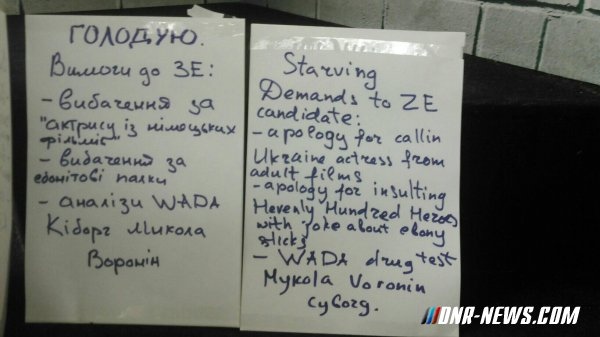 ГОЛОДУЮ.
Вимоги до ЗЕ:
- вибачення за
"актрису із німоцьких
фільмів"
- вибачення за
ебонітові палки
- аналізи WADA
Кіборг Микола
Воронін
Starving
Demands to ZE
candidate:
- apology for callin
Ukraine actress from
adult films
- apology for insulting
Hevenly Hundred Heroes
with joke about ebony
sticks
- WADA drug test
Mykola Voronin
cyborg.
DNR-NEWS.COM